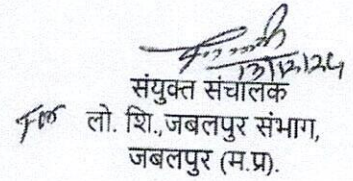 13/12/24
संयुक्त संचालक
For लो. शि.,जबलपुर संभाग,
जबलपुर (म.प्र).